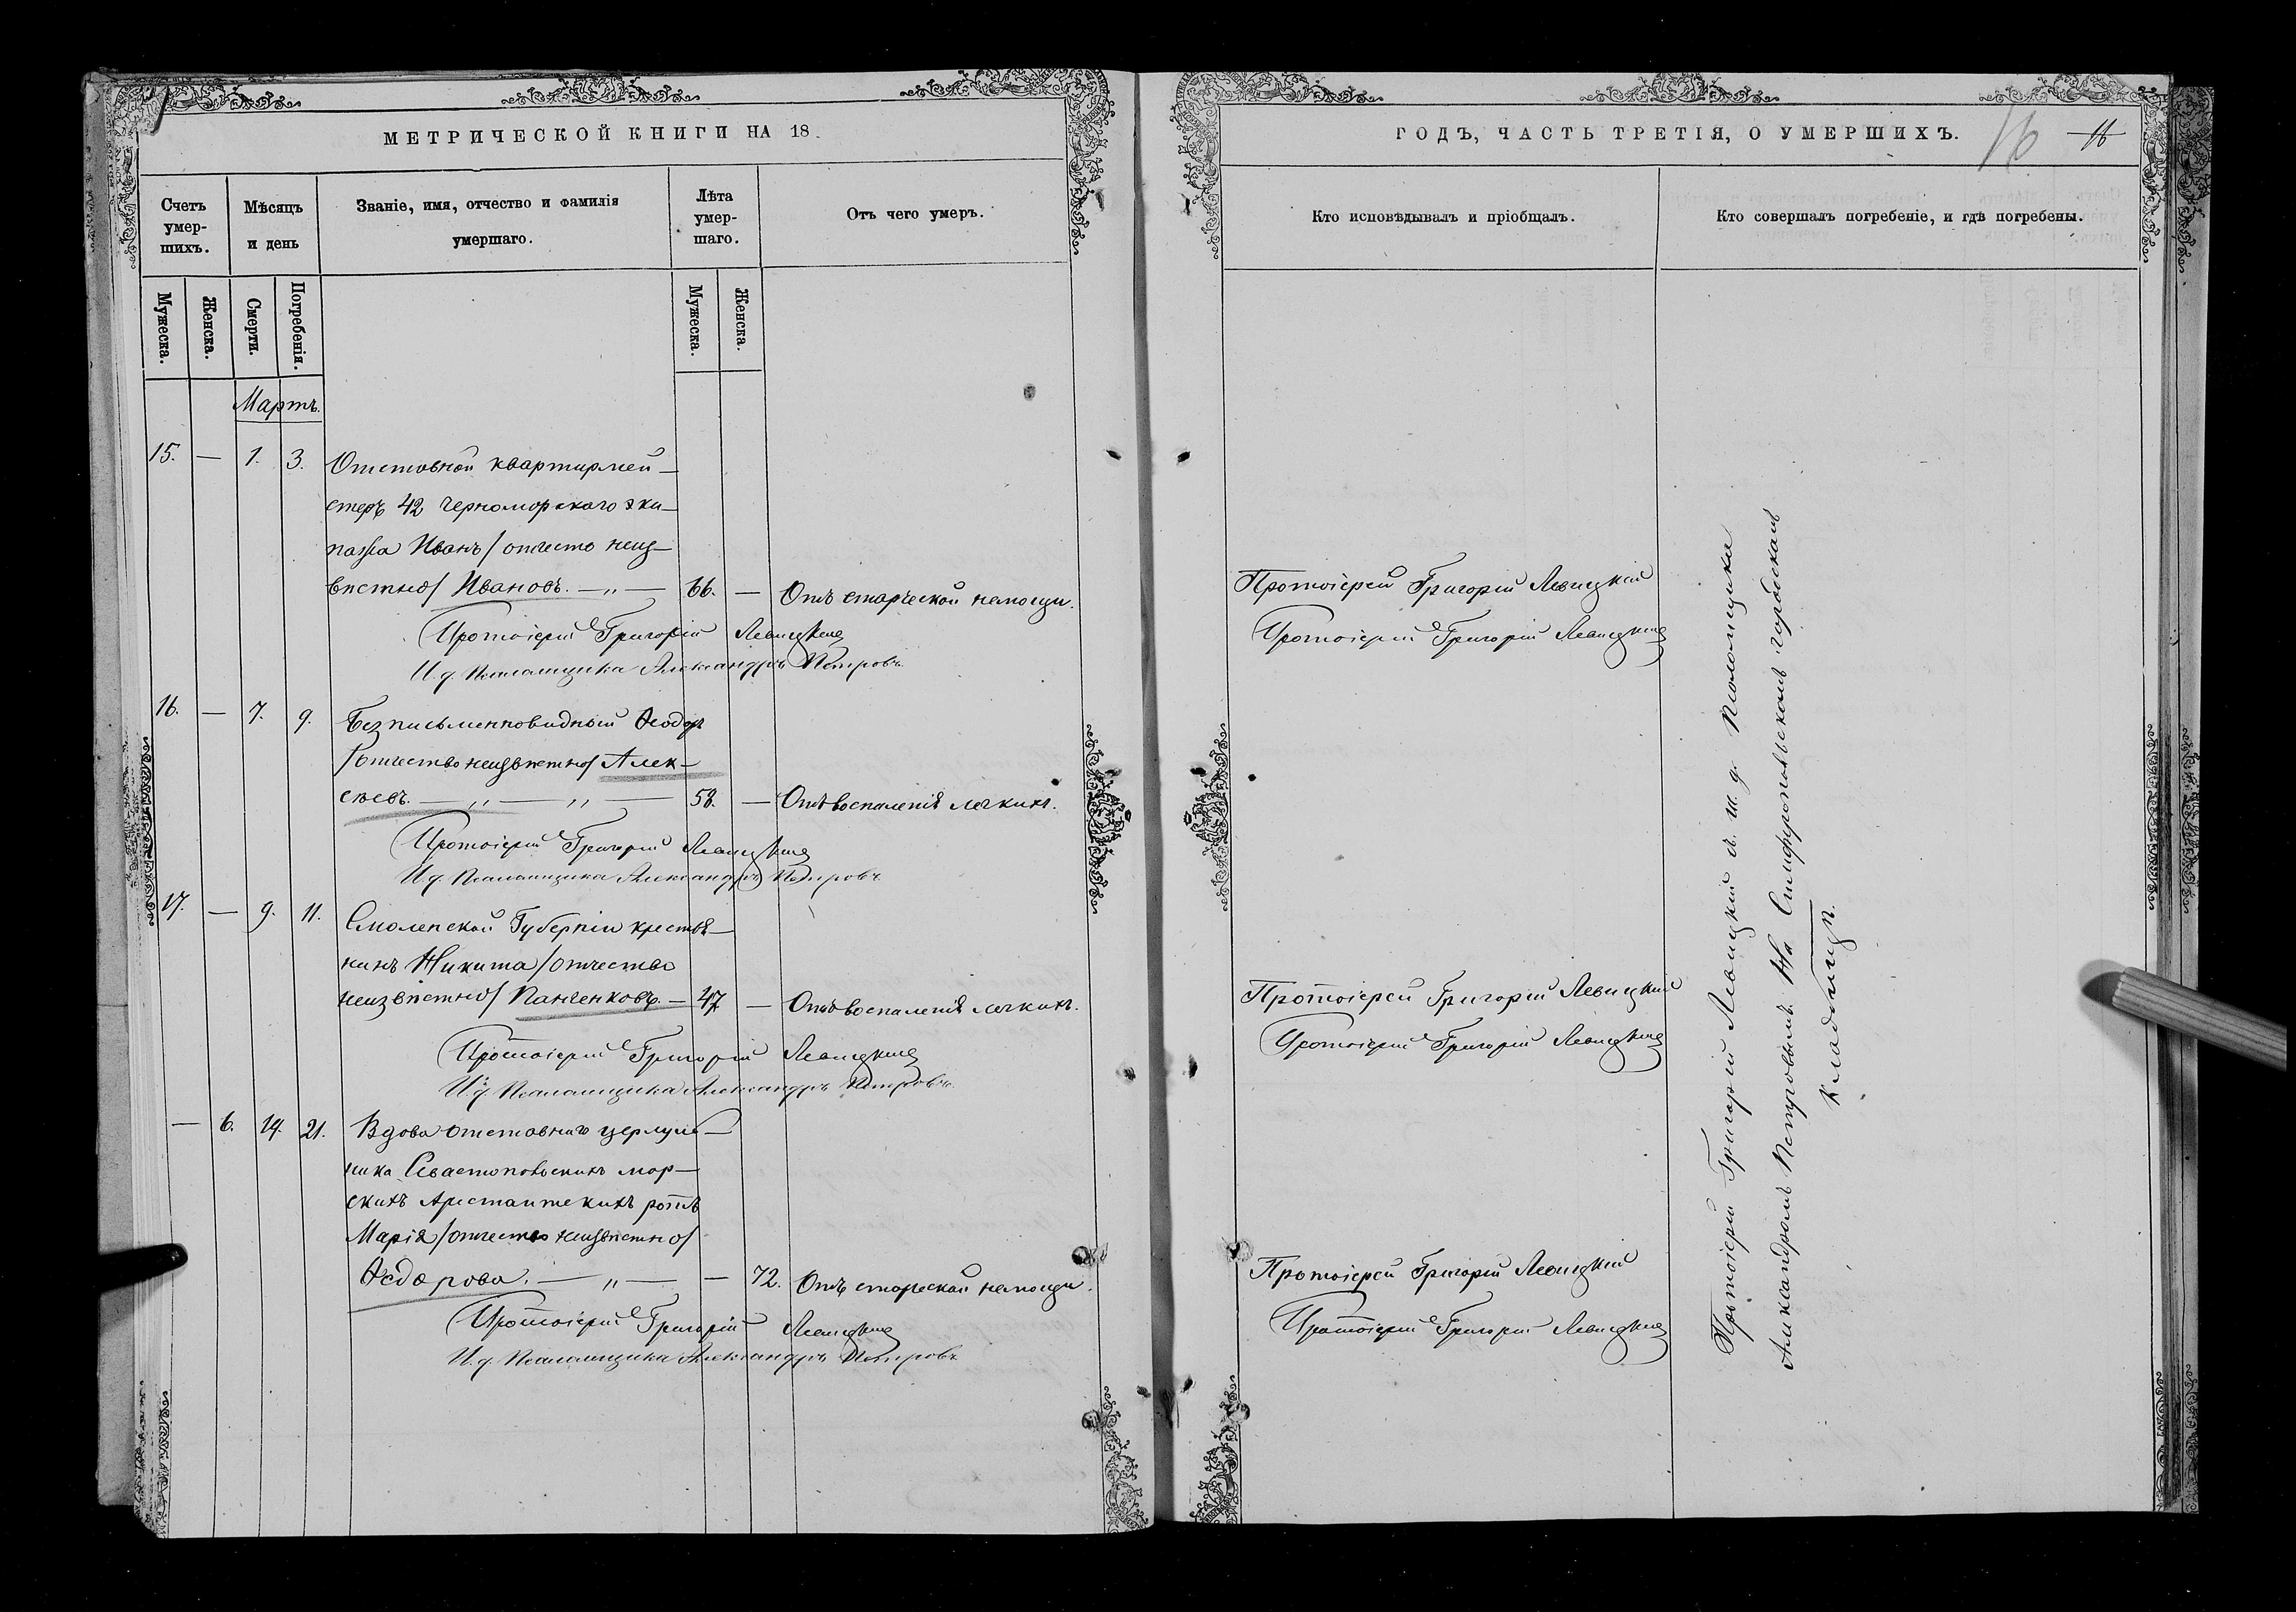 МЕТРИЧЕСКОЙ КНИГИ НА 18
Счетъ умер-
шихъ.
Мѣсяцъ
и день
Званіе, имя, отчество и фамилія
умершаго.
Лѣта
умер-
шаго.
Отъ чего умеръ.
Мужеска.
Женска.
Смерти.
Погребенія.
Мужеска.
Женска.
Мартъ.
15. — 1. 3. Отставной квартирмей—
стеръ 42 Черноморскаго эки—
пажа Иванъ /отчество неиз—
вѣстно/ Ивановъ. —„— 66. — Отъ старческой немощи.
Протоіерей Григорій Левицкій
И. д. Псаломщика Александръ Петровъ
16. — 7. 9. Безписьменновидный Ѳеодоръ
/отчество неизвѣстно/ Алек—
сѣевъ. —„—„— 58. — Отъ воспаленія легкихъ.
Протоіерей Григорій Левицкій
И. д. Псаломщика Александръ Петровъ
17. — 9. 11. Смоленской Губерніи крестья—
нинъ Никита /отчество
неизвѣстно/ Панченковъ. — 47. — Отъ воспаленія легкихъ.
Протоіерей Григорій Левицкій
И. д. Псаломщика Александръ Петровъ
— 6. 19. 21. Вдова отставнаго
ника Севастопольскихъ мор—
скихъ Арестантскихъ ротъ
Марія /отчество неизвѣстно/
Ѳедорова. —„— — 72. Отъ старческой немощи.
Протоіерей Григорій Левицкій
И. д. Псаломщика Александръ Петровъ
ГОДЪ, ЧАСТЬ ТРЕТІЯ, О УМЕРШИХЪ.
16 16
Кто исповѣдывалъ и пріобщалъ.
Кто совершалъ погребеніе, и гдѣ погребены.
Протоіерей Григорій Левицкій
Протоіерей Григорій Левицкій
Протоіерей Григорій Левицкій
Протоіерей Григорій Левицкій
Протоіерей Григорій Левицкій
Протоіерей Григорій Левицкій
Протоіерей Григорій Левицкій съ и. д. Псаломщика
Александромъ Петровымъ. На Симферопольскомъ городскомъ
кладбищѣ.